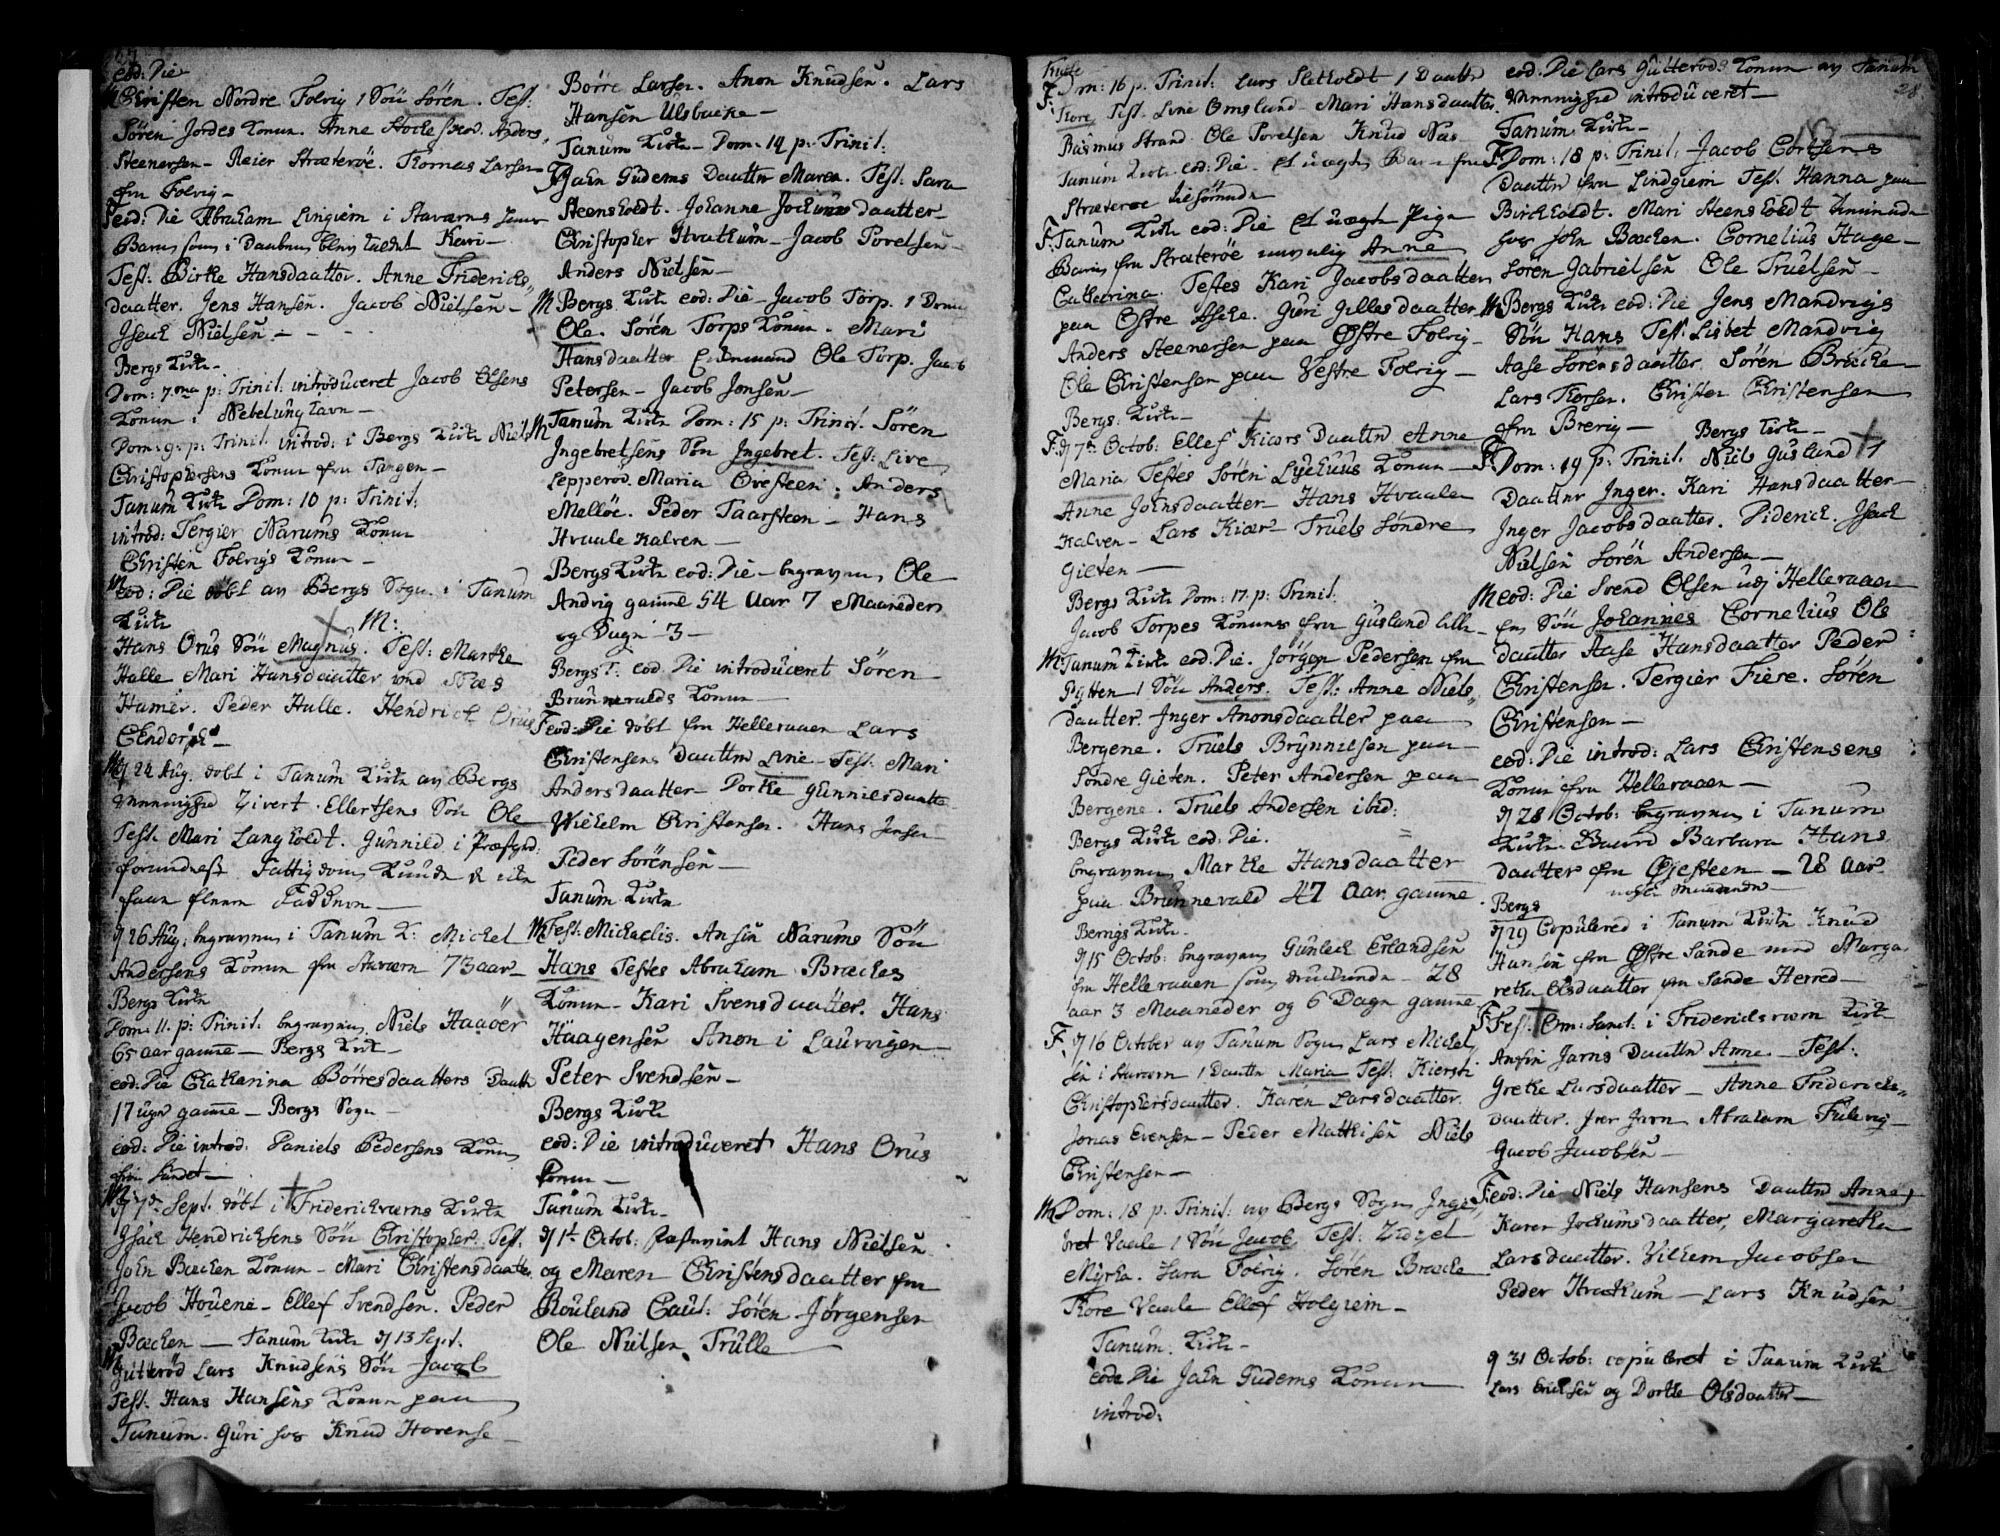 eod: Die
Christen Nordre Folvig 1 Sön Sören. Test:
Sören Jordes Konen. Anne Anders
Steenersen - Reier Stræteröe. Thomas Larsen
fra Folvig -
eod: Die Abraham Lingiem i Staværns
Barn som i Daaben blev kaldt Kari -
Test: Birthe Hansdaatter. Anne Friderichs
daatter. Jens Hansen. Jacob Nielsen -
Isach Nielsen. -
Bergs Kirke -
Dom: 7ma p: Trinit: introduceret Jacob Olsens
Konen i Nebelunghavn -
Dom: 9. p: Trinit: introd: i Bergs Kirke Niels
Christophersens Konen fra Tangen -
Tanum Kirke Dom: 10 p: Trinit:
introd: Tergier Narums Konen
Christen Folvigs Konen -
eod: Die döbt af Bergs Sogn i Tanum
Kirke M:
Hans Orus Sön Magnus. Test: Marthe
Halle Mari Hansdaatter ved Næs
Hamer. Peder Halle. Hendrich Orus
M 24 Aug. döbt i Tanum Kirke af Bergs
Menninghed Zivert Ellertsens Sön Ole
Test. Mari Langholdt. Gunnild i Præstgrd:
formedelst Fattigdom kunde ei
faae fleere Faddere -
26 Aug: begraven i Tanum K: Michel
Andersens Konen fra Stavern 73 aar -
Bergs Kirke
Dom: 11. p: Trinit. begraven Niels Haaöer
65 aar gamle - Bergs Kirke -
eod: Die Chatharina Börresdaatters Daatter
17 uger gamle - Bergs Sogn -
eod: Die introd. Daniels Pedersens Konen
fra Sundet -
M 7de Sept. döbt i Fridericksværns Kirke
Isach Hendrichsens Sön Christopher. Test.
John Bæcken Konen - Mari Christensdaatter
Jacob Houene - Ellef Svendsen. Peder
Bæcken - Tanum Kirke 13 Sept.
M Gutteröd Lars Knudsens Sön Jacob
Test. Hans Hansens Konen paa
Tanum. Guri hos Knud Horense -
Börre Larsen. Anon Knudsen. Lars
Hansen Ulsbacke -
Tanum Kirke - Dom: 14 p: Trinit:
F John Gudems Daatter Maren. Test: Sara
Steensholdt. Johanne Jochumsdaatter -
Christopher Hvatkum - Jacob Povelsen -
Anders Nielsen -
M Bergs Kirke eod: Die - Jacob Torp. 1 Dreng
Ole. Sören Torps Konen. Mari
Hansdaatter Ole Torp. Jacob
Petersen - Jacob Jonsen -
M Tanum Kirke Dom: 15 p: Trinit. Sören
Ingebretsens Sön Ingebret. Test: Live
Lepperöd. Maria Örsteen. Anders
Mellöe. Peder Taarsteen - Hans
Hvaale Kalven -
Bergs Kirke eod: Die - begraven Ole
Andrig gamle 54 aar 7 Maaneder
og Dage 3 -
Bergs K: eod. Die introduceret Sören
Brunnevalds Konen -
F eod: Die döbt fra Helleraaen Lars
Christensens Daatter Line - Test: Mari
Andersdaatter - Dorthe Gunnilsdaatter
Wilhelm Christensen. Hans Jensen
Peder Sörensen -
Tanum Kirke
M Fest: Michaelis. Ansin Narums Sön
Hans Testes Abraham Bræckes
Konen - Kari Svensdaatter. Hans
Haagensen Anon i Laurvigen
Peter Svendsen -
Bergs Kirke
eod: Die introduceret Hans Orus
Konen -
Tanum Kirke -
1te Octob: Hans Nielsen
og Maren Christensdaatter fra
Rouland Caut: Sören Jörgensen
Ole Nielsen Trulle -
28
Kirke
F: Dom: 16 p: Trinit: Lars Sletholdt 1 Daatter
Thore Test. Line Omsland - Mari Hansdaatter.
Rasmus Strand. Ole Povelsen Knud Næs
Tanum Kirke eod: Die. et uægte Barn fra
Stræteröe
F. Tanum Kirke eod: Die et uægte Pige
Barn fra Stræteröe navnlig Anne
Catharina. Testes Kari Jacobsdaatter
paa Östre Aske. Guri Gillesdaatter
Anders Steenersen paa Östre Folvig -
Ole Christensen paa Vestre Folvig -
Bergs Kirke -
F. 7de Octob: Ellef Kiærs Daatter Anne
Maria Testes Sören Konen -
Anne Johnsdaatter - Hans Hvaale
Kalven - Lars Kiær - Truels Söndre
Gieten -
Bergs Kirke Dom: 17. p: Trinit.
Jacob Torpes Konens fra Gusland lille -
M Tanum Kirke eod: Die. Jörgen Pedersen fra
Pytten 1 Sön Anders. Test: Anne Niels
daatter. Inger Anonsdaatter paa
Bergene. Truels Brynnilsen paa
Söndre Gieten. Peter Andersen paa
Bergene. Truels Andersen ibid:
Bergs Kirke eod: Die.
begraven Marthe Hansdaatter
paa Brunnevald 47 aar gamle
Bergs Kirke.
15 Octob: begraven Gunlech Erlandsen
fra Helleraaen som druknede - 28
aar 3 Maaneder og 6 Dage gamle
F. 16 October af Tanum Sogn Lars Michel
sen i Staværn 1 Daatter Maria Test: Kiersti
Christophersdaatter. Karen Larsdaatter.
Jonas Evensen - Peder Mathisen Niels
Christensen -
M Dom: 18 p. Trinit: af Bergs Sogn Inge
bret Vaale 1 Sön Jacob. Test: Zidzel
Myrka. Sara Folvig. Sören Bræcke
Thore Vaale Ellef Holgiem -
Tanum Kirke -
eod: Die John Gudems Konen
introd:
eod: Die Lars Gutteröds Konen af Tanum
Menninghed introduceret -
Tanum Kirke -
F Dom: 18 p: Trinit: Jacob Cortsens
Daatter fra Lindgiem Test. Hanna paa
Birkholdt. Mari Steensholdt
hos John Bæcken. Cornelius Hage -
Sören Gabrielsen Ole Truelsen -
M Bergs Kirke eod: Die Jens Mandvigs
Sön Hans Test: Lisbet Mandvig
Aase Sörensdaatter Sören Bræcke -
Lars Thorsen. Christen Christensen
fra Brevig - Bergs Kirke -
F. Dom: 19 p: Trinit: Niels Gusland 1
Daatter Inger. Kari Hansdaatter
Inger Jacobsdaatter. Diderick. Isach
Nielsen Sören Andersen -
M eod: Die Svend Olsen ved Helleraaen
en Sön Johannes Cornelius Ols
daatter Aase Hansdaatter Peder
Christensen. Tergier Fiere. Sören
Christensen -
eod: Die introd: Lars Christensens
Konen fra Helleraaen -
28 Octob: begraven i Tanum
Kirke Barbara Hans
daatter fra Öjesteen - 28 aar
Bergs
29 Copulered i Tanum Kirke Knud
Hansen fra Östre Sande med Marga
retha Olsdaatter fra Sande Herred -
F Fest: Omn: Sanct: i Fridericksværn Kirke
Anfin Jarns Daatter Anne - Test:
Grethe Larsdaatter - Anne Fridericks
daatter. Iver Jarn Abraham Fulevig -
Jacob Jacobsen -
F. eod: Die Niels Hansens Daatter Anne
Karen Jochumsdaatter. Margaretha
Larsdaatter. Vilhem Jacobsen
Peder Hvatkum - Lars Knudsen
31 Octob: copuleret i Tanum Kirke
Lars Ericksen og Dorthe Olsdaatter -